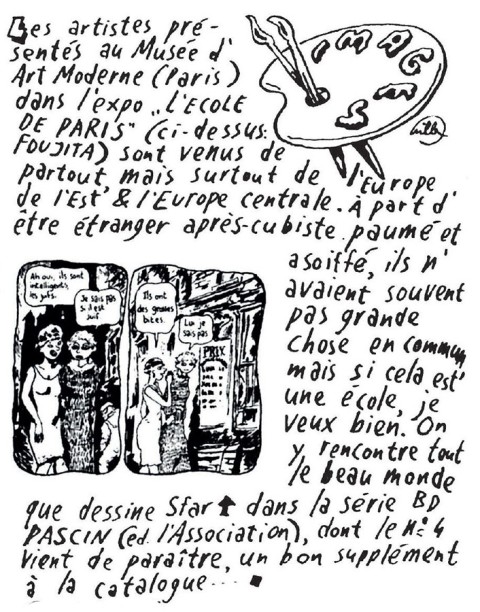 IMAGES
Willem
Les artistes pré-
sentés au Musée d'
Art Moderne (Paris)
dans l'expo „L'ECOLE
DE PARIS" (ci-dessus:
FOUJITA) sont venus de
partout, mais surtout de l'Europe
de l'Est & l'Europe centrale. À part d'
être étranger après-cubiste paumé et
assoiffé, ils n'
avaient souvent
pas grande
chose en commun
mais si cela est
une école, je
veux bien. On
y rencontre tout
le beau monde
Ah oui, ils sont
intelligents,
les juifs.
Je sais pas
s'il est
juif
Ils ont
des grosses
bites.
Lui je
sais pas
PRIX
que dessine Sfar ↑ dans la série BD
PASCIN (éd. l'Association), dont le n° 4
vient de paraître, un bon supplément
à la catalogue... ■